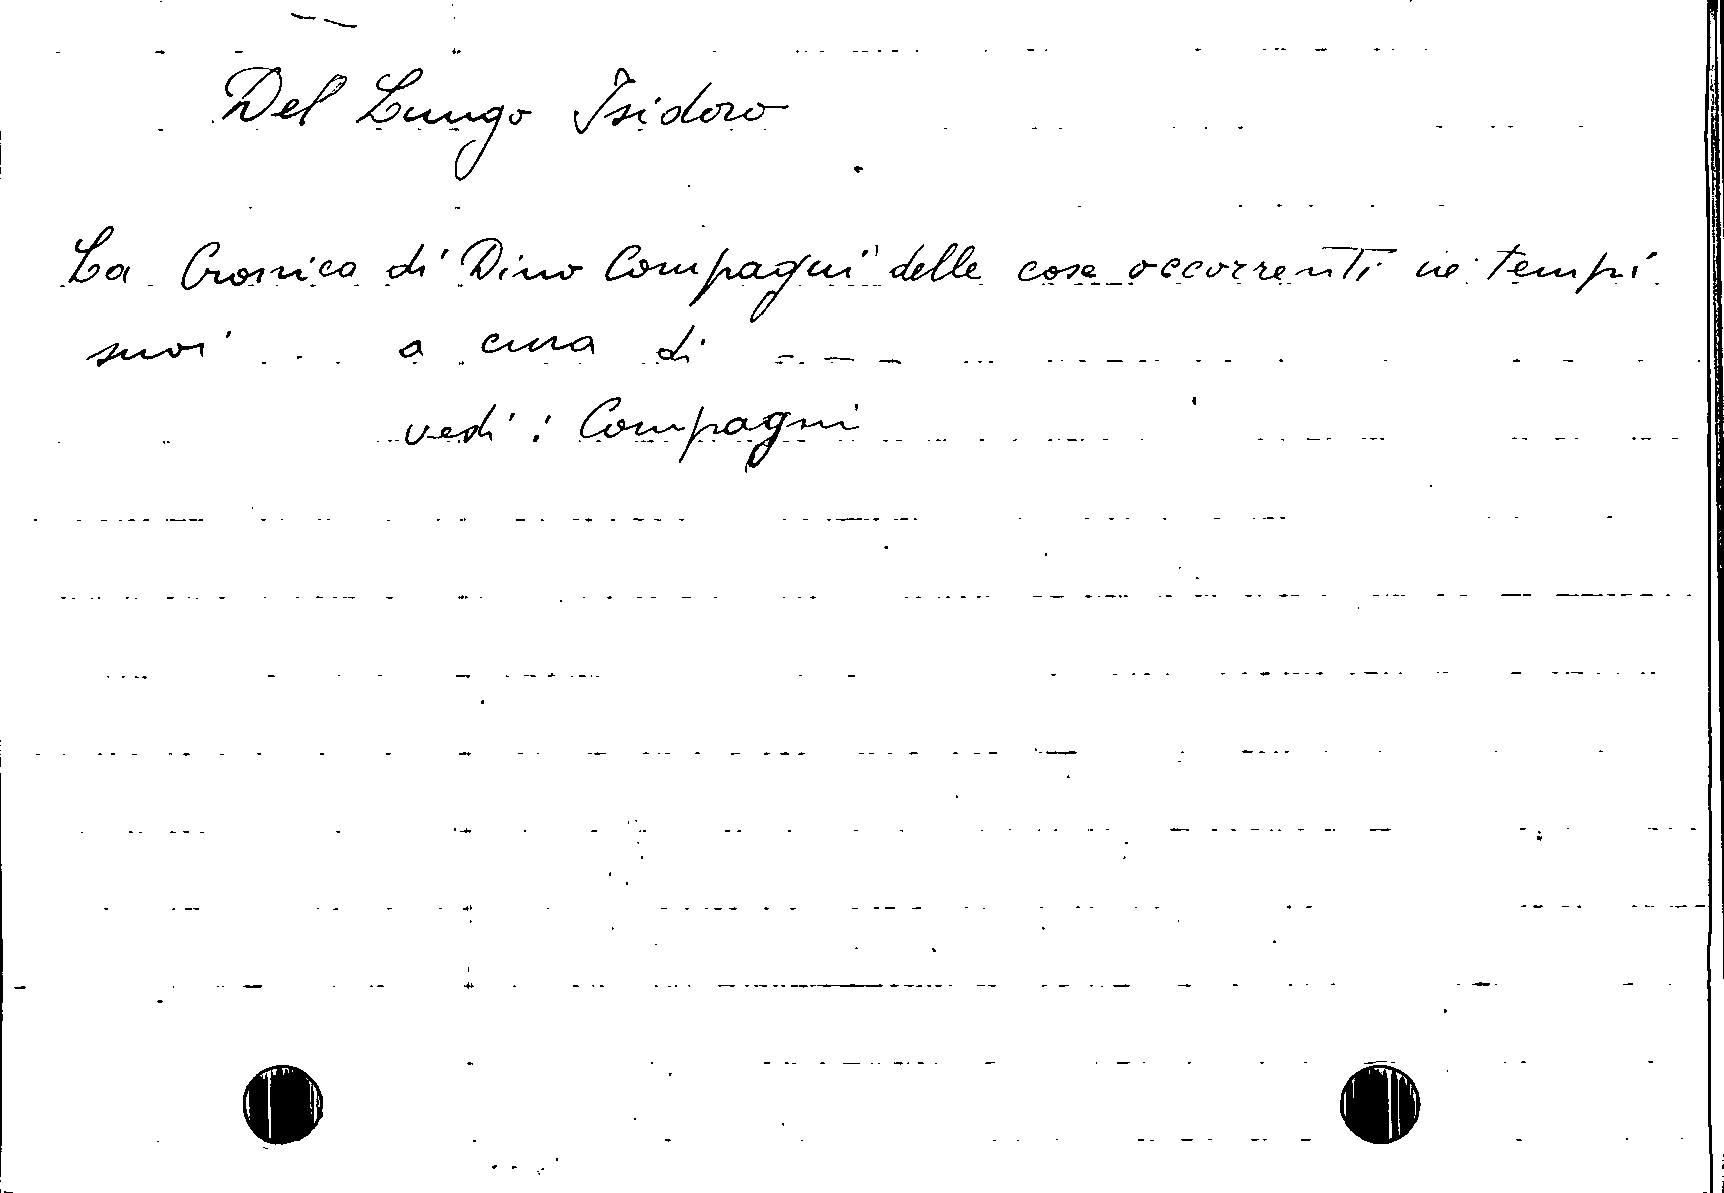 Del Lungo Isidoro
La Cronica di Dino Compagni delle cose occorrenti ne' tempi
suoi a cura di
vedi: Compagni